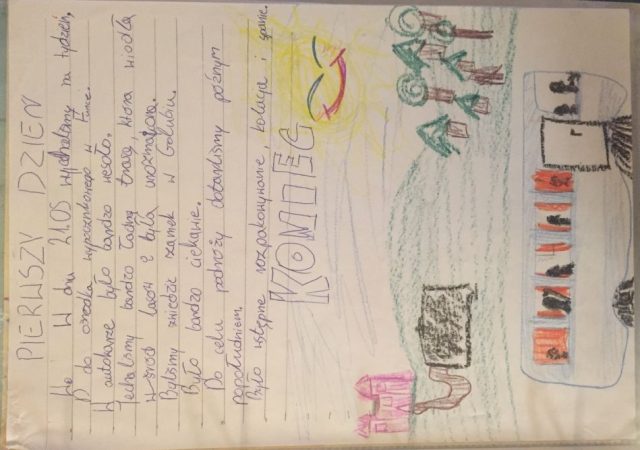 PIERWSZY DZIEŃ
W dniu 21.05 wyjechaliśmy na tydzień,
D do ośrodka wypoczynkowego w Funce.
W autokarze było bardzo wesoło.
Jechaliśmy bardzo ładną trasą, która wiodła
wśród lasów i była urozmaicona.
Byliśmy zwiedzić zamek w Golubiu.
Było bardzo ciekawie.
Do celu podróży dotarliśmy późnym
popołudniem.
Było wstępne rozpakowywanie, kolacja i spanie.
KONIEC